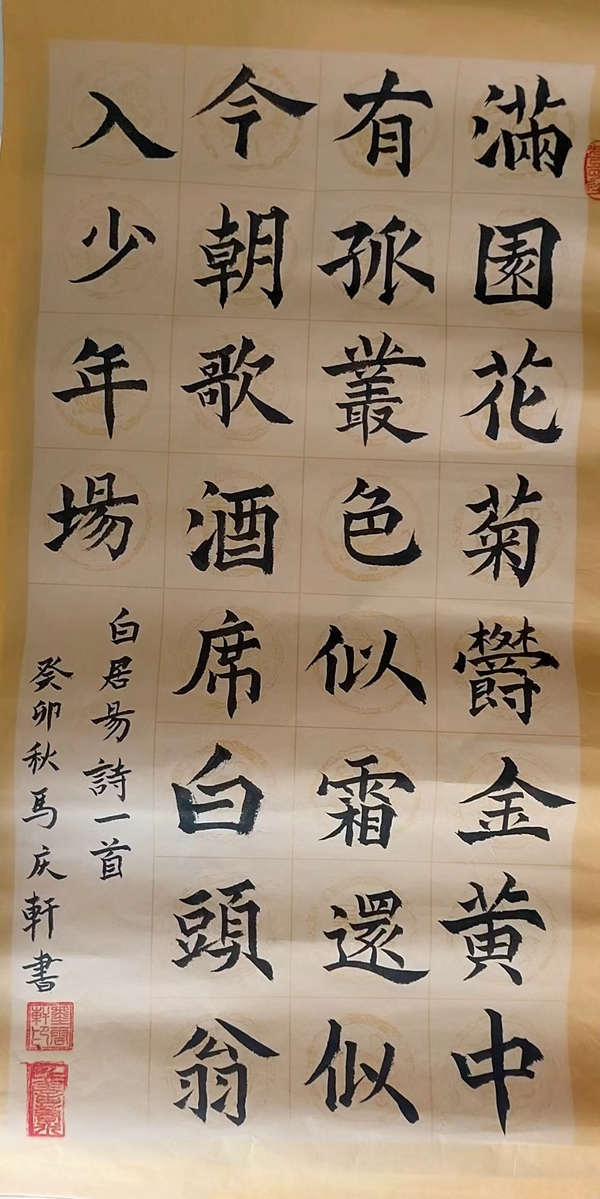 滿園花菊鬱金黄中
有孤叢色似霜還似
今朝歌酒席白頭翁
入少年場
白居易詩一首
癸卯秋馬庆軒書